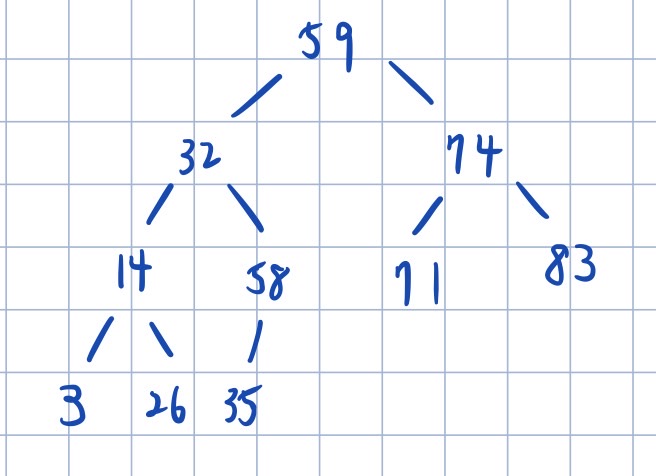 59
32 74
14 58 71 83
3 26 35